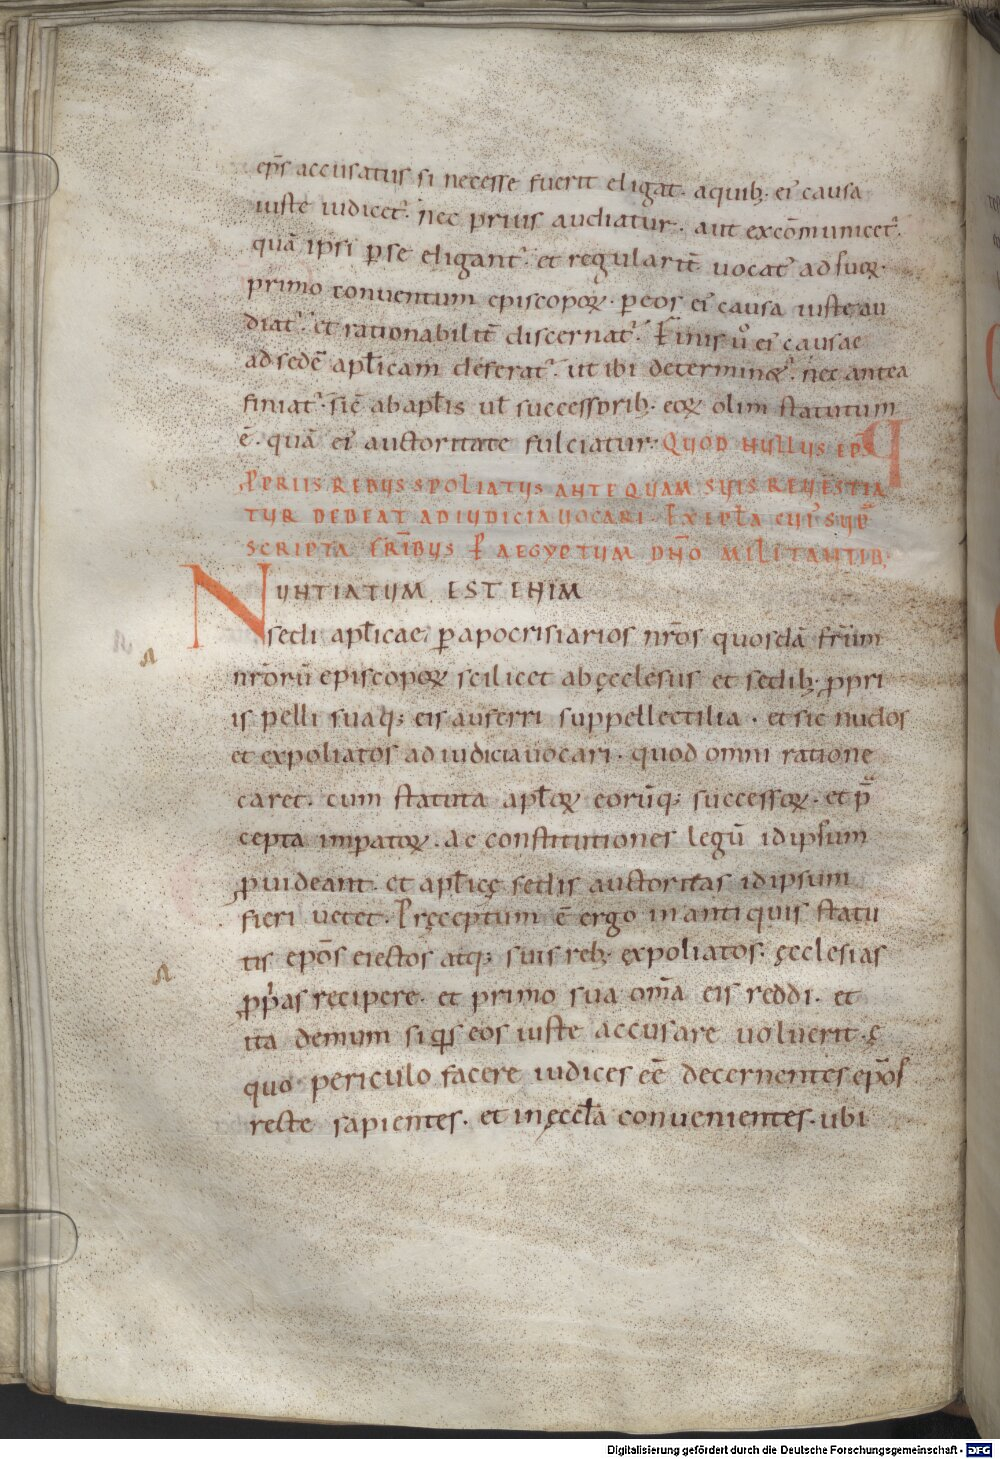 ep̄s accusatus si necesse fuerit eligat. a quib; ei causa
iuste iudicet᷑. nec prius audiatur. aut excōmunicet᷑.
quā ipsi ꝑ se eligant᷑. et regularit̄ uocat᷑ ad suoꝝ
primo conuentum episcopoꝝ. ꝑ eos ei causa iuste au
diat᷑. et rationabilit̄ discernat᷑. Finis ů ei causae
ad sedē apl̄icam deferat᷑. ut ibi determinet᷑. nec antea
finiat᷑. sic̄ ab apl̄is ul̄ successorib; eoꝝ olim statutum
ē. quā ei auctoritate fulciatur. QUOD NULLUS EP̄S
P̄PRIIS REBUS SPOLIATUS ANTEQUAM SUIS REUESTIA
TUR DEBEAT AD IUDICIA UOCARI. EX EPL̄A CUI᷒ SUP̄
SCRIPTA FR̄IBUS P̄ AEGYPTUM DN̄O MILITANTIB;
NUNTIATUM EST ENIM
sedi apl̄icae, ꝑ apocrisiarios nr̄os quosdā fr̄um
nr̄orū episcopoꝝ scilicet ab ęcclesiis et sedib; ꝓpri
is pelli suaq; eis auferri suppellectilia. et sic nudos
et expoliatos ad iudicia uocari. quod omni ratione
caret. cum statuta apl̄oꝝ eorūq; successoꝝ. et p̄
cepta impatoꝝ. ac constitutiones legū id ipsum
ꝓuideant. et apl̄icę sedis auctoritas id ipsum
fieri uetet. Pręceptum ē ergo in antiquis statu
tis epōs eiectos atq; suis reb; expoliatos. ęcclesias
ꝓp̄as recipere. et primo sua om̄ia eis reddi. et
ita demum si qs̄ eos iuste accusare uoluerit. ę
quo periculo facere iudices eē decernentes epōs
recte sapientes. et in ęccl̄a conuenientes. ubi
Digitalisierung gefördert durch die Deutsche Forschungsgemeinschaft - DFG